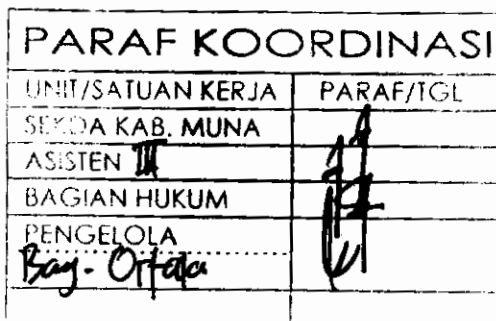 PARAF KOORDINASI
UNIT/SATUAN KERJA PARAF/TGL
SEKDA KAB. MUNA
ASISTEN III
BAGIAN HUKUM
PENGELOLA
Bag. Ortala